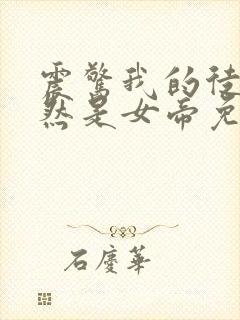 震驚我的徒
然是女帝免
石慶華